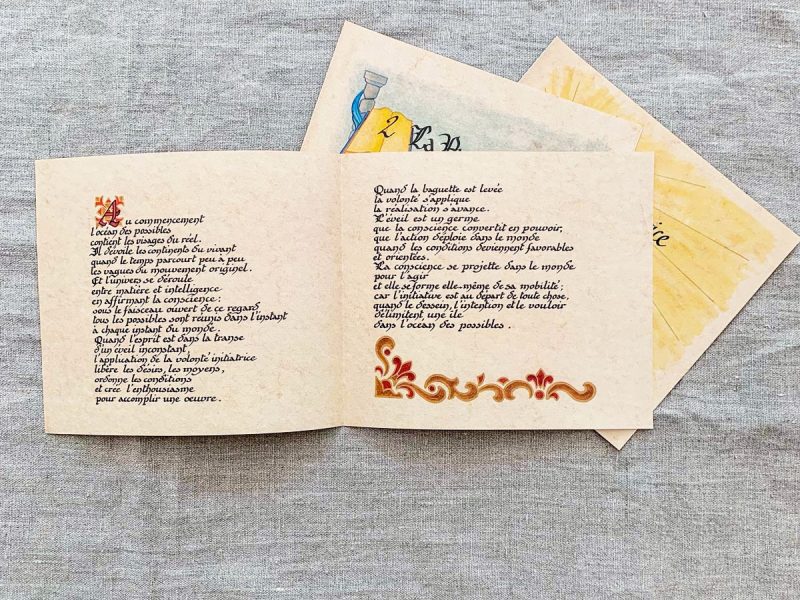 Au commencement
l'océan des possibles
contient les visages du réel.
Il dévoile les continents du vivant
quand le temps parcourt peu à peu
les vagues du mouvement originel.
Et l'univers se déroule
entre matière et intelligence
en affirmant la conscience :
sous le faisceau ouvert de ce regard
tous les possibles sont réunis dans l'instant
à chaque instant du monde.
Quand l'esprit est dans la transe
d'un éveil inconstant,
l'application de la volonté initiatrice
libère les désirs, les moyens,
ordonne les conditions
et crée l'enthousiasme
pour accomplir une oeuvre.
Quand la baguette est levée
la volonté s'applique
la réalisation s'avance.
L'éveil est un germe
que la conscience convertit en pouvoir,
que l'action déploie dans le monde
quand les conditions deviennent favorables
et orientées.
La conscience se projette dans le monde
pour l'agir
et elle se forme elle-même de sa mobilité ;
car l'initiative est au départ de toute chose,
quand le dessein, l'intention et le vouloir
délimitent une île
dans l'océan des possibles.
2 La
ice